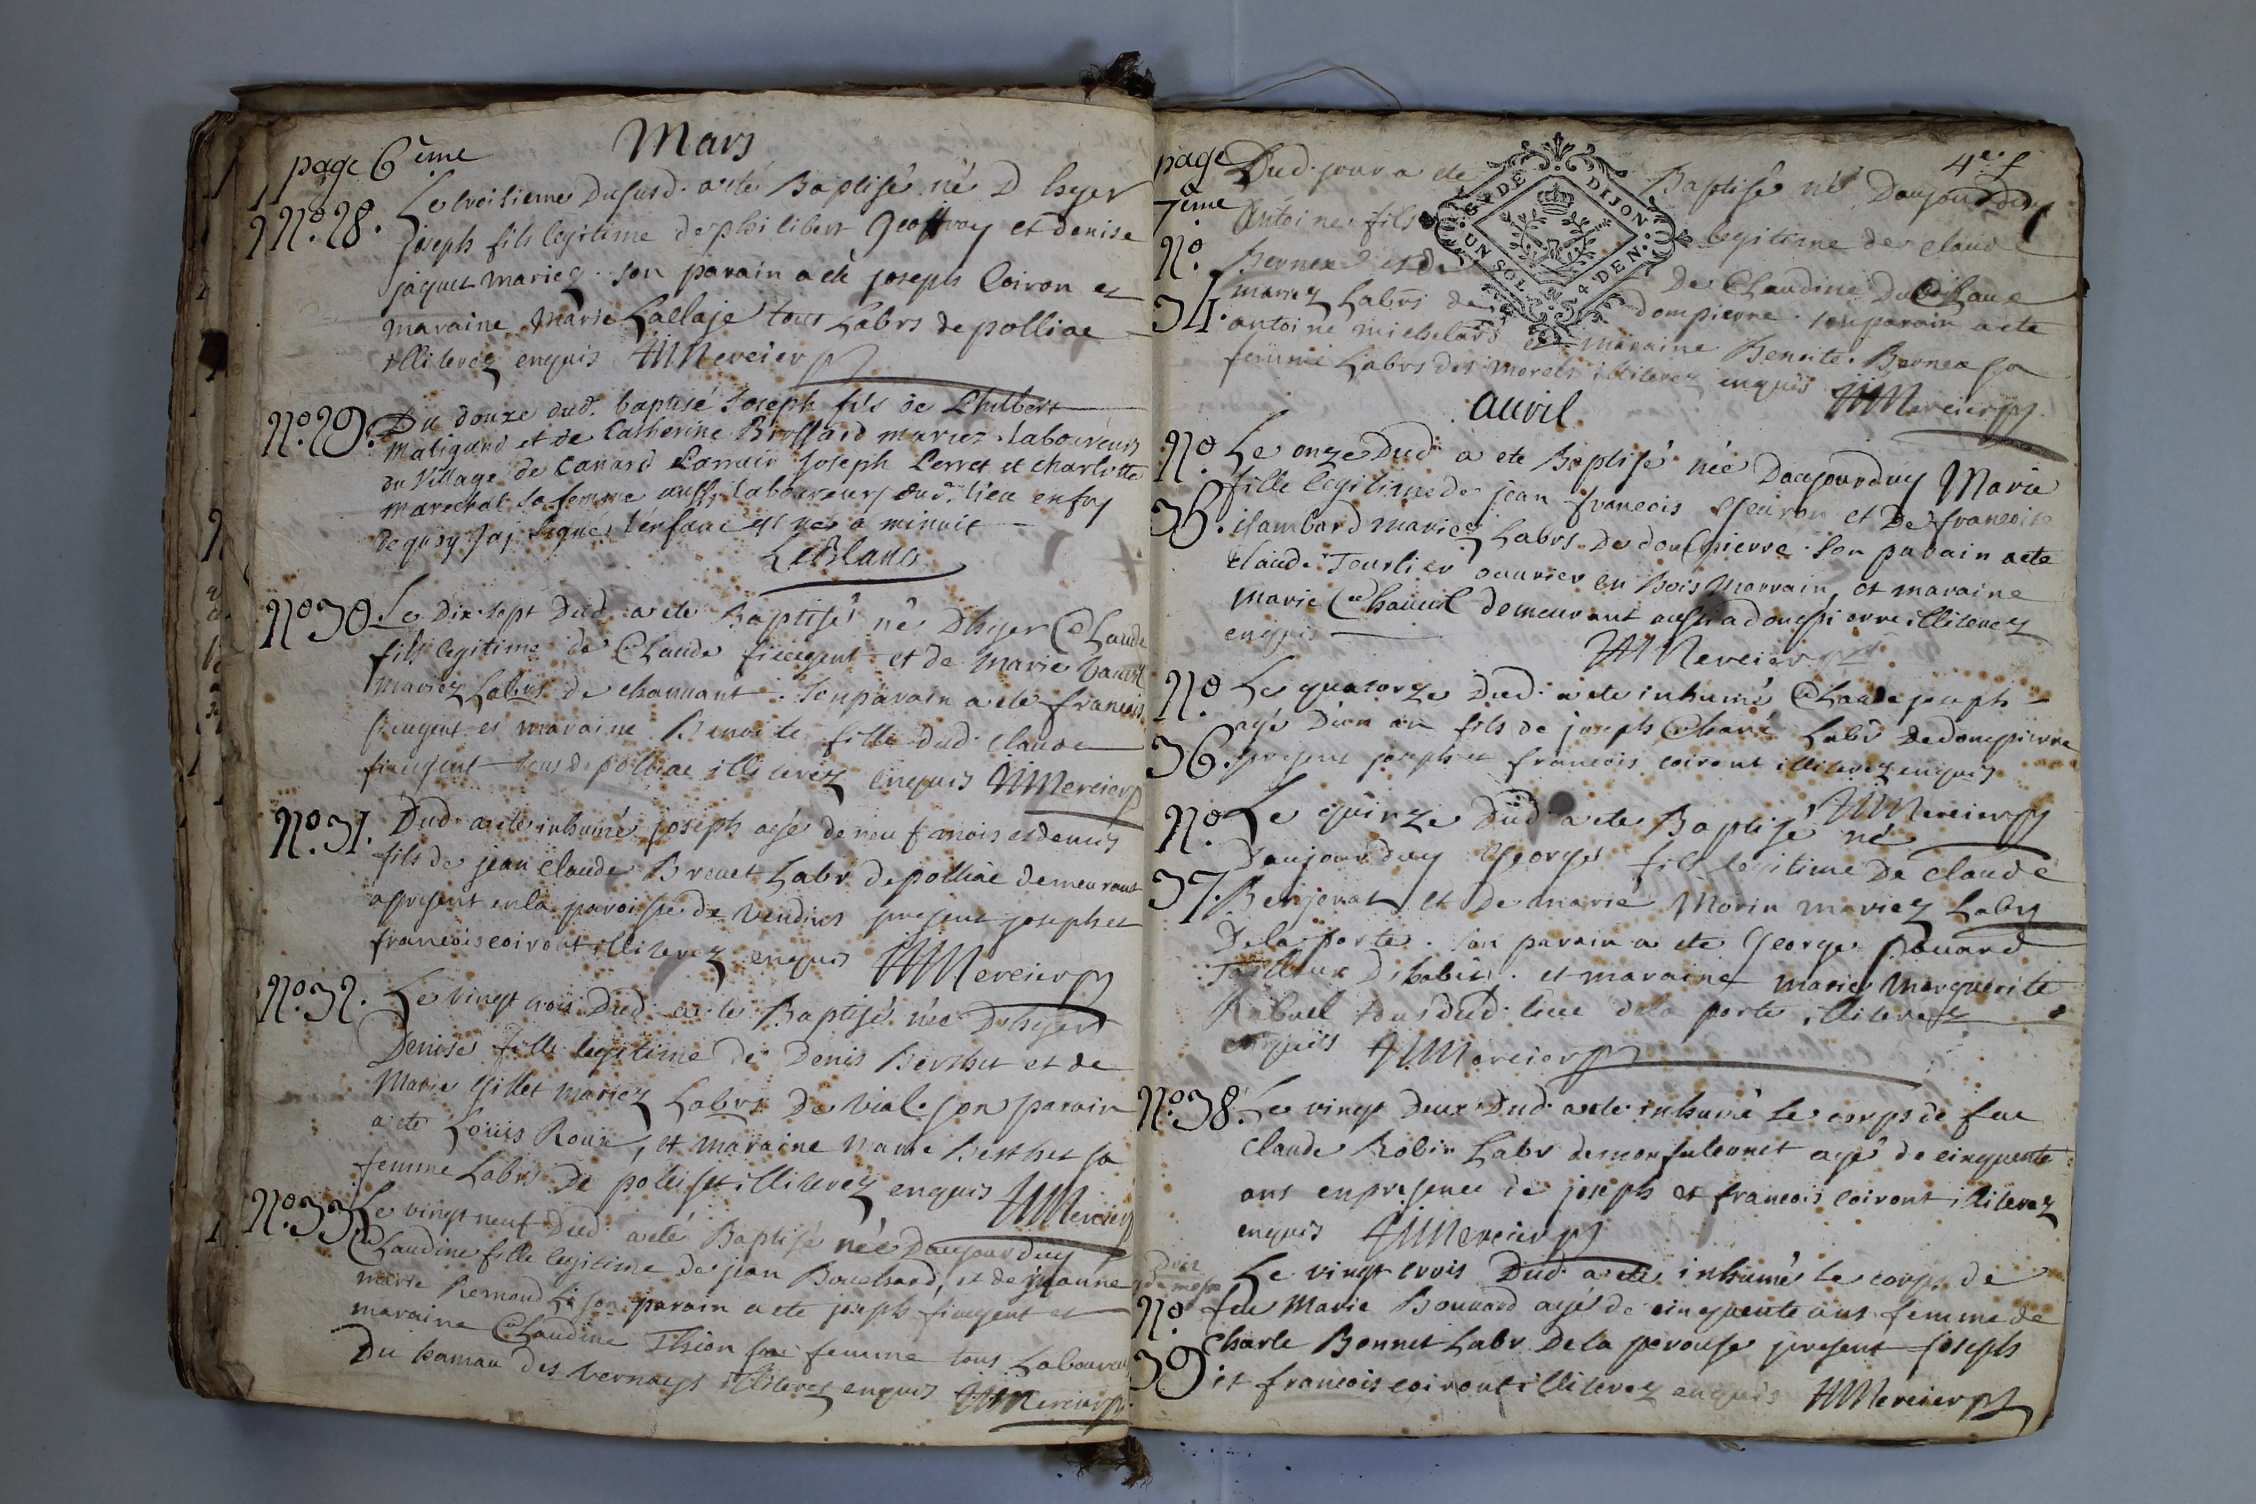 page 6ème
Mars
No. 28.
Le treisieme dususd. a eté Baptisé né D hyer
joseph fils legitime de philibert Geoffroy et denise
jaquet mariez. son parain a eté joseph Coiron et
maraine Marie Lallaje tous Labrs de polliac
illiterez enquis HMMercier p
No. 29.
Du douze dud. baptisé Joseph fils de Philbert
Matigand et de Catherine Broffard mariez laboureurs
du Village de Canard Parrain Joseph Perret et charlotte
marechal sa femme aussi laboureurs dud. lieu en foy
de quoy j'ai signé l'enfant est né a minuit
LeBlanc
No. 30.
Le Dix sept Dud. a eté Baptisé né D'hyer Claude
fils legitime de Claude fieugent et de Marie
mariez Labrs de channant. son parain a eté francois
fieugent et maraine Benoite fille dud. claude
fieugent tous de polliac illiterez enquis HMMercier p
No. 31.
Dud. a eté inhumé joseph agé de neuf mois et demis
fils de jean claude Brouet Labr de polliac demeurant
apresent en la paroisse de Vendues present joseph et
francois coiront illiterez enquis HMMercier p
No. 32.
Le vingt trois Dud. a eté Baptisé née D'hyer
Denise fille legitime de Denis Berthet et de
Marie Gillet mariez Labrs De Vial. son parain
a eté Louis Roux, et maraine marie Berthet sa
femme Labrs De illiterez enquis HMMercier p
No. 33.
Le vingt neuf Dud. a eté Baptisé née Daujourduy
Claudine fille legitime de jean Bouchard, et de jeanne
marie Remond son parain a eté joseph fieugent et
maraine Claudine Thion sa femme tous Laboureurs
Du hamau des vernays illiterez enquis HMMercier p
page
7ème
4e. f
No.
34.
Dud. jour a eté Baptisé né Daujourduy
Antoine fils legitime de claude
Bernex et de De Claudine
mariez Labrs de dompierre. son parain a eté
antoine michelard et maraine Benoite Bernex sa
femme Labrs des morels illiterez enquis HMMercier p
GV DE DIJON
UN SOL 4 DEN
Auvil
No
35.
Le onze Dud. a eté Baptisé née Daujourduy Marie
fille legitime de jean francois et De francoise
Lambard mariez Labrs De dompierre. son parain a eté
Claude Tourlier ouvrier en Bois Morrain, et maraine
Marie Chauvil demeurant aussi a dompierre illiterez
enquis
HMMercier p
No
36.
Le quatorze Dud. a eté inhumé Claude joseph
agé D'un an fils de joseph Charé Labr De dompierre
present joseph et francois coiront illiterez enquis
HMMercier p
No
37.
Le quinze Dud. a eté Baptisé né
Daujourduy George fils legitime De claude
Benjenat et De marie Morin mariez Labrs
De la porte. son parain a eté George Rouard
Tailleur D'habits. et maraine marie Marguerite
Rebuel tous dud. lieu de la porte illiterez
enquis HMMercier p
No. 38.
Le vingt Deux Dud. a eté inhumé le corps de feu
Claude Robin Labr de agé de cinquante
ans en presence de joseph et francois coiront illiterez
enquis HMMercier p
No
39
Le vingt trois Dud. a eté inhumé le corps de
feu Marie Bouvard agé de cinquante ans femme de
Charle Bonnet Labr. De la perouse present joseph
et francois coiront illiterez enquis HMMercier p